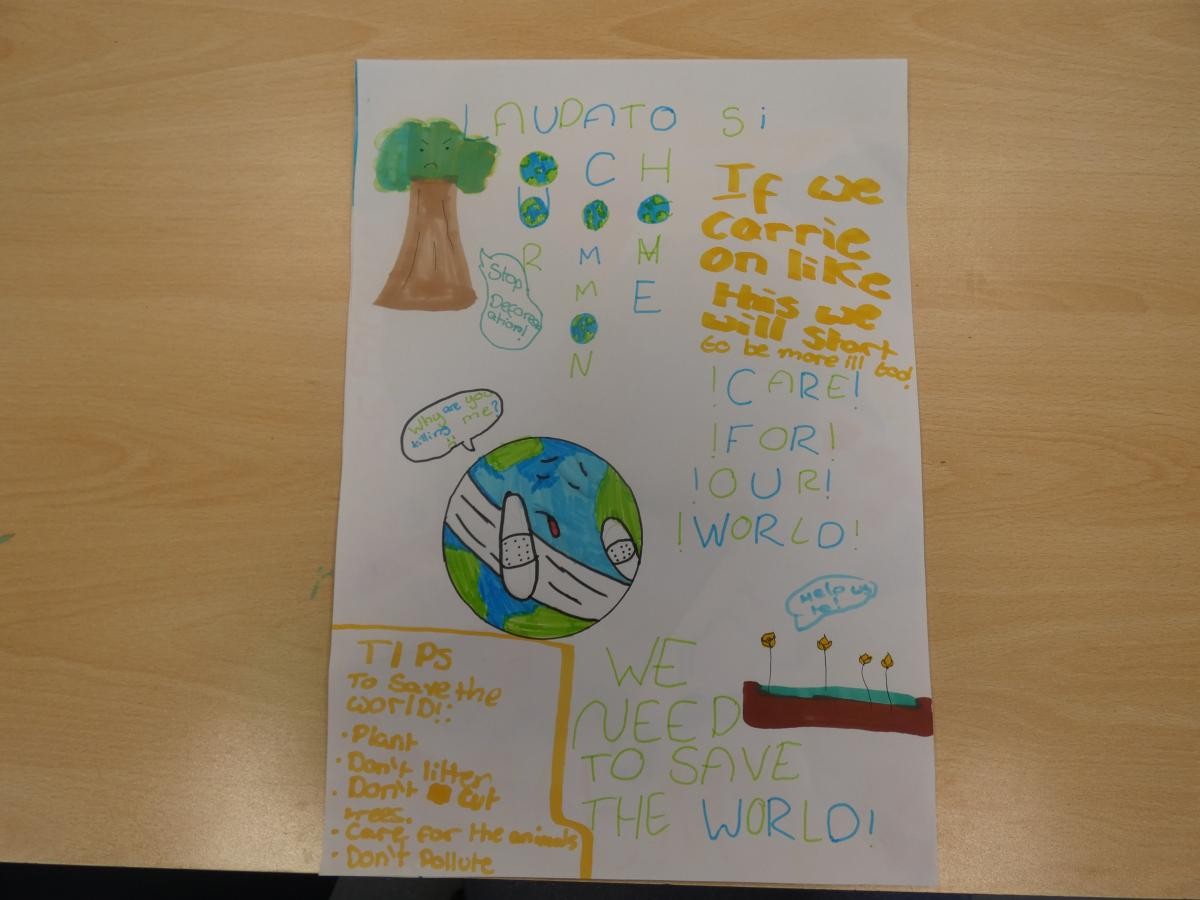 LAUDATO Si
OUR
COMMON
HOME
Stop
If we
carrie
on like
this we
will start
to be more ill
!CARE!
!FOR!
!OUR!
!WORLD!
Why are you
killing me?
Help us
TIPS
To Save the
WORLD!:
• Plant
• Don't litter
• Don't cut
trees.
• Care for the animals
• Don't Pollute
WE
NEED
TO SAVE
THE WORLD!